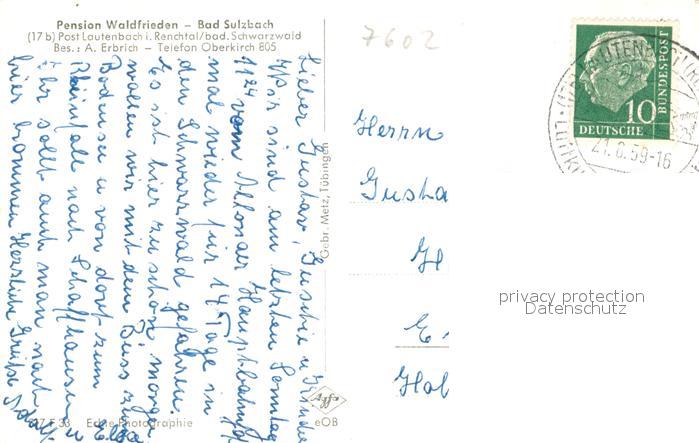 Pension Waldfrieden – Bad Sulzbach
(17b) Post Lautenbach i. Renchtal/bad. Schwarzwald
Bes.: A. Erbrich – Telefon Oberkirch 805
7602
Lieber Gustav, u. Kinder
Wir sind am letzten Sonntag
1124 vom Altonaer Hauptbahnhof
mal wieder für 14 Tage in
den Schwarzwald gefahren.
Es ist hier zu schön, morgen
wollen wir mit dem Buss zum
Bodensee u von dort zum
Rheinfall nach Schaffhausen u
Ihr sollt auch man nach
hier kommen Herzliche Grüße Adolf
u Elsa
Gebr. Metz, Tübingen
Herrn
Gusta
H
E
Hol
10
DEUTSCHE
BUNDESPOST
21.6.59-16
privacy protection
Datenschutz
F 33 Echte Photographie
Agfa
eOB